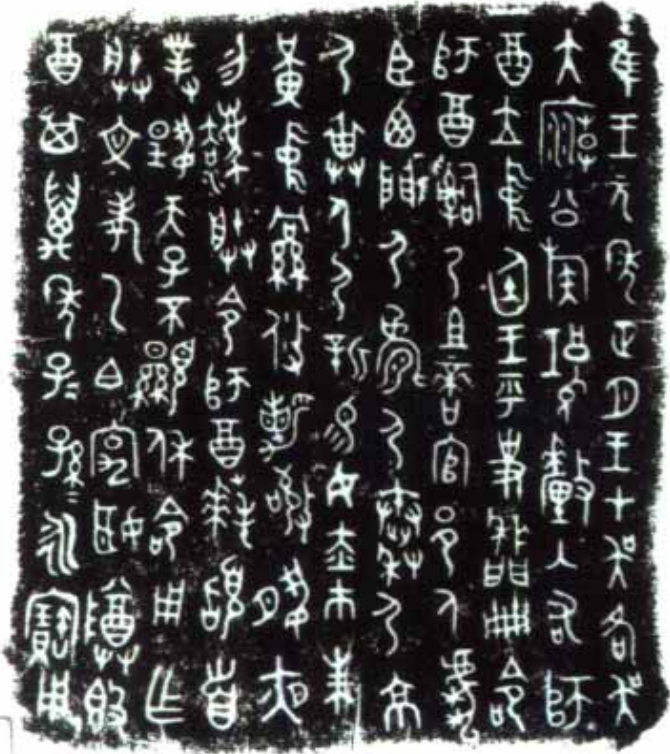 隹王元年正月王才吳各吳
大廟公族𪁪釐入右師
酉立中廷王乎史墻冊命
師酉嗣乃且啻官邑人虎
臣西門夷䍙夷秦夷京
夷畀身夷新易女赤市朱
黃中冋攸勒敬夙夜
勿灋朕令師酉拜稽首
對揚天子不顯休命用乍
朕文考乙白究姬尊簋
酉其萬年子子孫孫永寶用